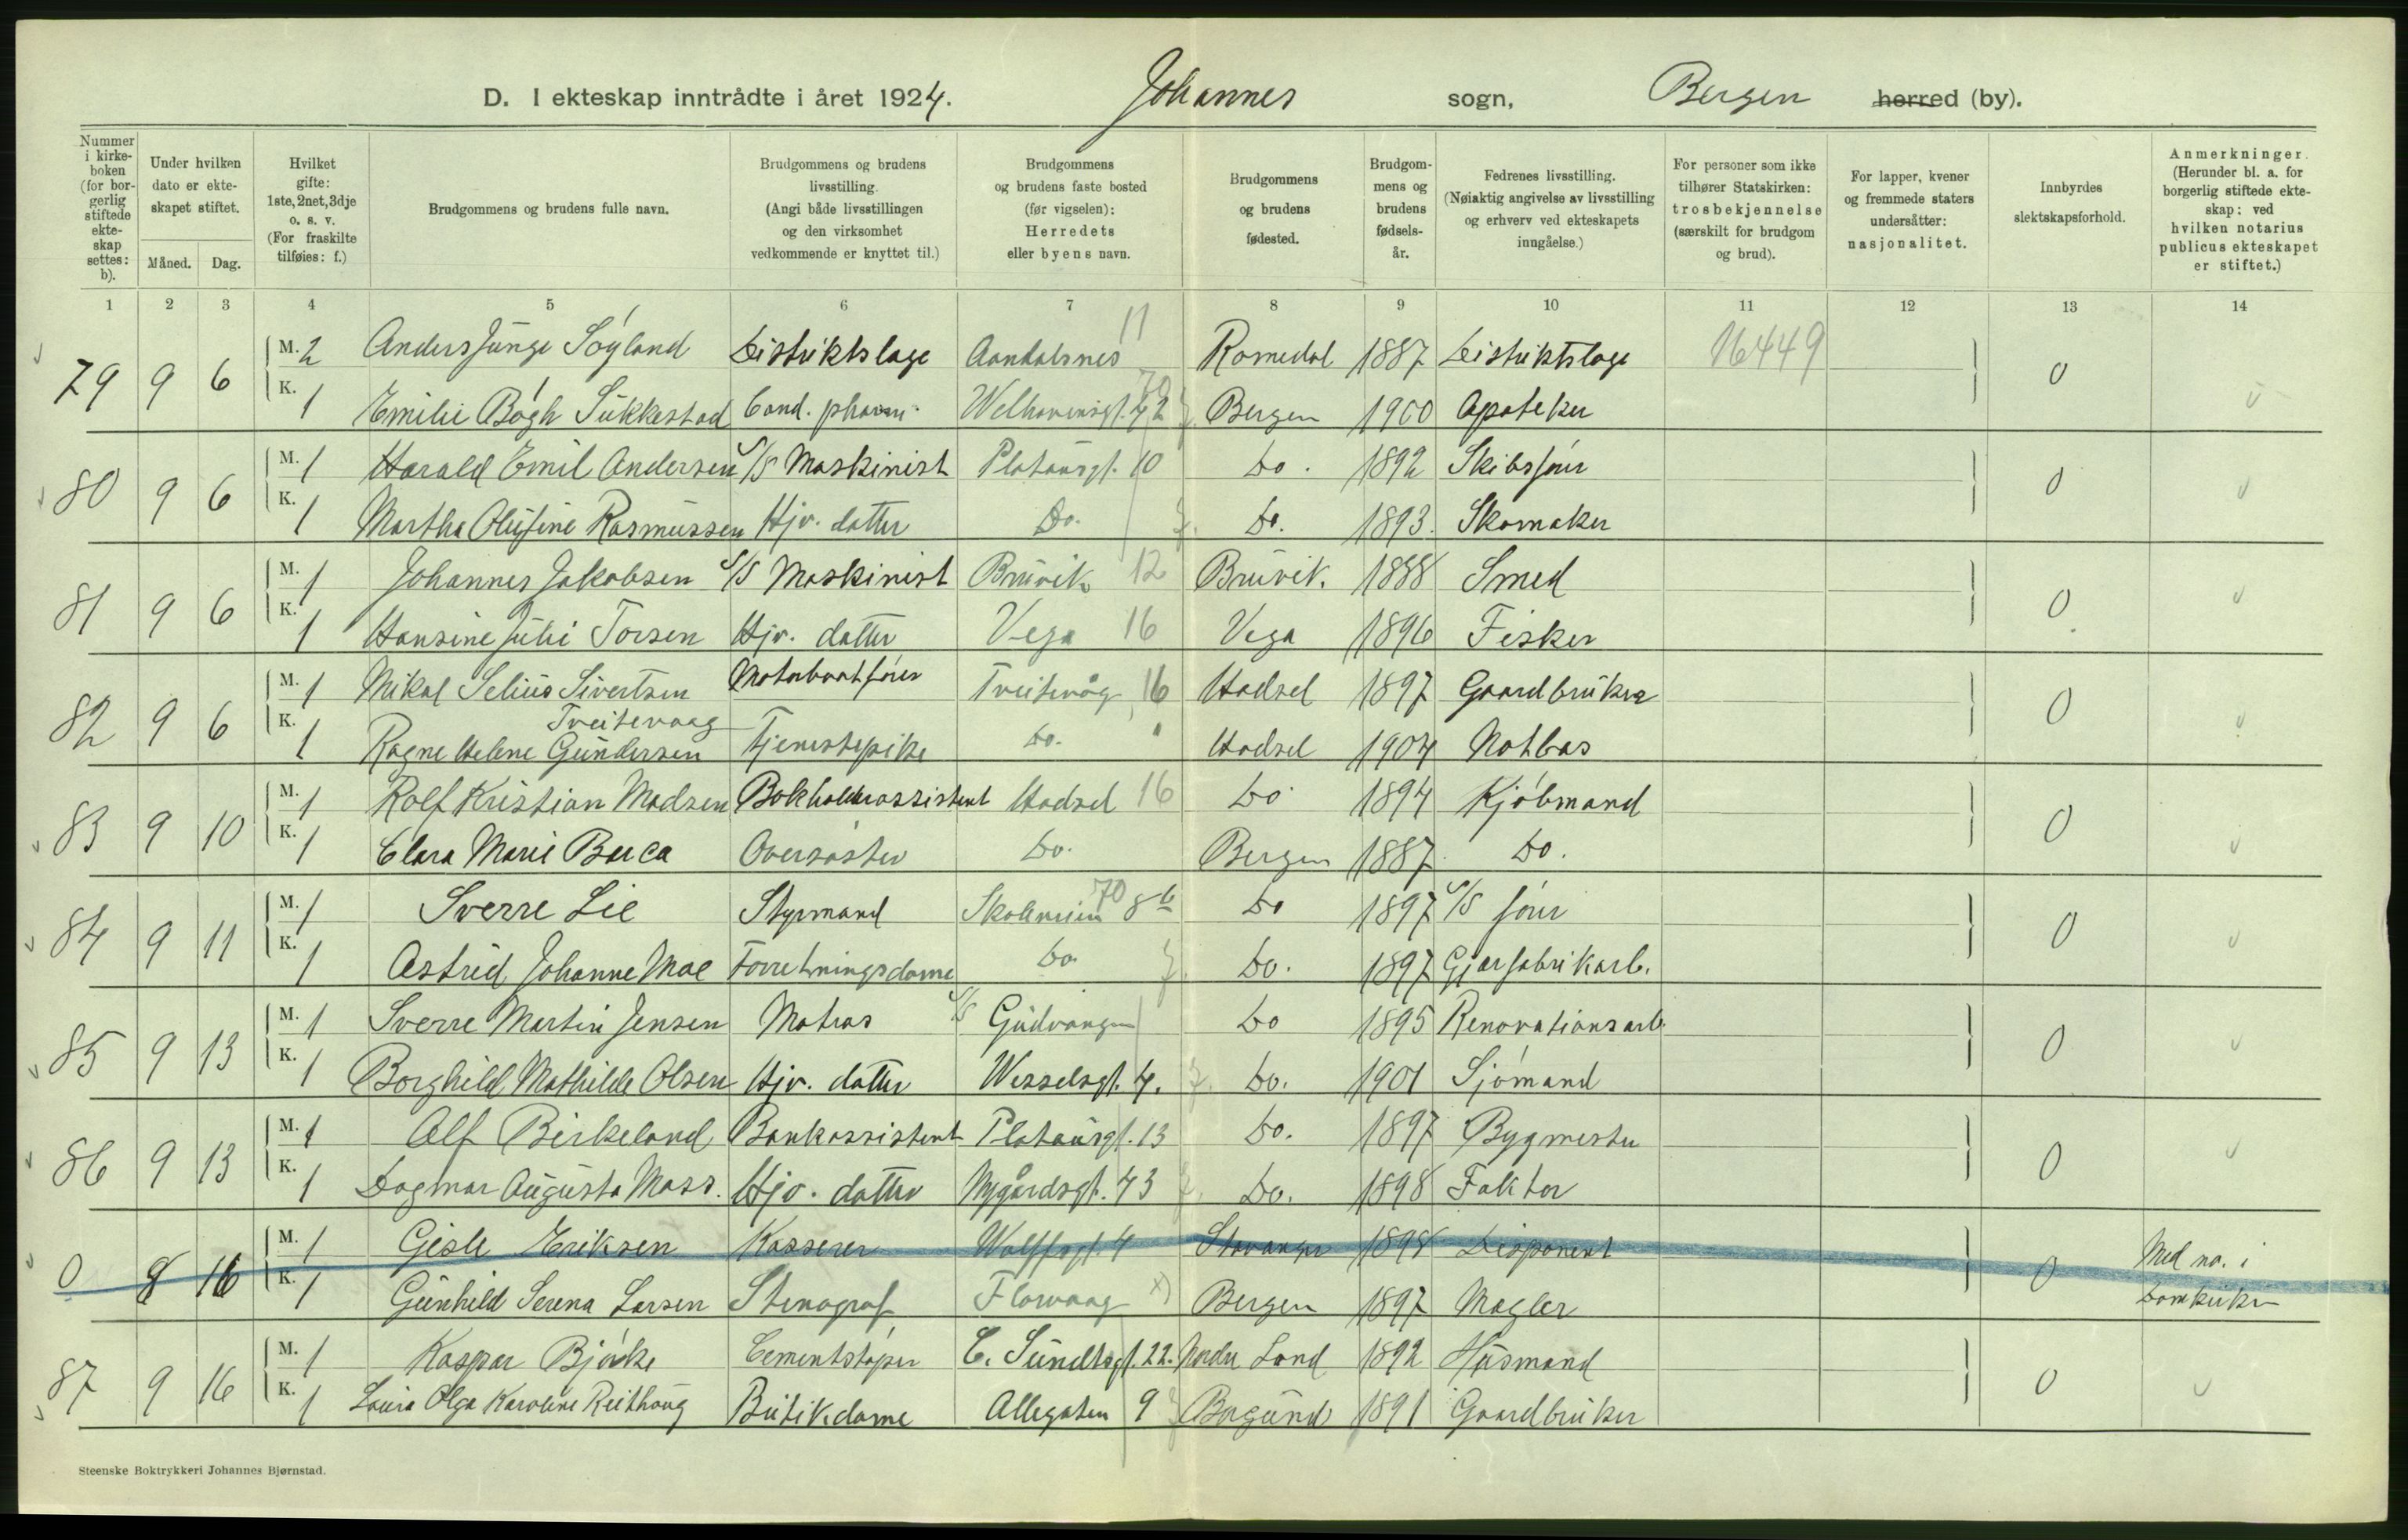 D. I ekteskap inntrådte i året 1924. Johannes sogn, Bergen herred (by).
Nummer i kirkeboken (for borgerlig stiftede ekteskap settes: b).
Under hvilken dato er ekteskapet stiftet.
Måned. Dag.
Hvilket gifte: 1ste, 2net, 3dje o. s. v. (For fraskilte tilføies: f.)
Brudgommens og brudens fulle navn.
Brudgommens og brudens livsstilling. (Angi både livsstillingen og den virksomhet vedkommende er knyttet til.)
Brudgommens og brudens faste bosted (før vigselen): Herredets eller byens navn.
Brudgommens og brudens fødested.
Brudgommens og brudens fødselsår.
Fedrenes livsstilling. (Nøiaktig angivelse av livsstilling og erhverv ved ekteskapets inngåelse.)
For personer som ikke tilhører Statskirken: trosbekjennelse (særskilt for brudgom og brud).
For lapper, kvener og fremmede staters undersåtter: nasjonalitet.
Innbyrdes slektskapsforhold.
Anmerkninger. (Herunder bl. a. for borgerlig stiftede ekteskap: ved hvilken notarius publicus ekteskapet er stiftet.)
1 2 3 4 5 6 7 8 9 10 11 12 13 14
79 9 6 M. 2 Anders Junge Søyland Distriktslæge Aandalsnes 11 Romedal 1887 Distriktslæge 16449 0
K. 1 Emilie Bøgh Sukkestad Cand. pharm. Welhavensgt. 42 70 Bergen 1900 Apoteker
80 9 6 M. 1 Harald Emil Andersen S/S Maskinist Platousgt. 10 Do. 1892 Skibsfører 0
K. 1 Martha Olufine Rasmussen Hjv. datter Do. Do. 1893. Skomaker
81 9 6 M. 1 Johannes Jakobsen S/S Maskinist Bruvik 12 Bruvik. 1888 Smed 0
K. 1 Hansine Julie Torsen Hjv. datter Vega 16 Vega 1896 Fisker
82 9 6 M. 1 Mikal Selius Sivertsen Motorbaatfører Treitevåg 16 Hadsel 1897 Gaardbruker 0
Treitevaag
K. 1 Ragne Helene Gundersen Tjenestepike Do. " Hadsel 1904 Notbas
83 9 10 M. 1 Rolf Kristian Madsen Bokholderassistent Hadsel 16 Do. 1894 Kjøbmand 0
K. 1 Clara Marie Barca Oversøster Do. Bergen 1887 Do.
84 9 11 M. 1 Sverre Lie Styrmand 70 8 b Do 1897 S/S fører 0
K. 1 Astrid Johanne Moe Forretningsdame Do. Do. 1897 Gjærfabrikarb.
85 9 13 M. 1 Sverre Martin Jensen Matros S/S Gudvangen Do 1895 Renovationsarb. 0
K. 1 Borghild Mathilde Olsen Hjv. datter Wesselsgt. 4. Do. 1901 Sjømand
86 9 13 M. 1 Alf Birkeland Bankassistent Platousgt. 13 Do. 1897 Bygmester 0
K. 1 Dagmar Augusta Mass. Hjv. datter Nygårdsgt. 43 Do. 1898 Faktor
0 8 16 M. 1 Gisle Eriksen Kasserer Wolffsgt. 4 Stavanger 1898 Disponent 0 Med no. i
K. 1 Gunhild Serena Larsen Stenograf Florvaag x) Bergen 1897 Mægler Domkirken
87 9 16 M. 1 Kaspar Bjørke Cementstøper C. Sundtsgt. 22. Nordre Land 1892 Husmand 0
K. 1 Laura Olga Karoline Reithaug Butikdame Allegaten 9 Borgund 1891 Gaardbruker
Steenske Boktrykkeri Johannes Bjørnstad.